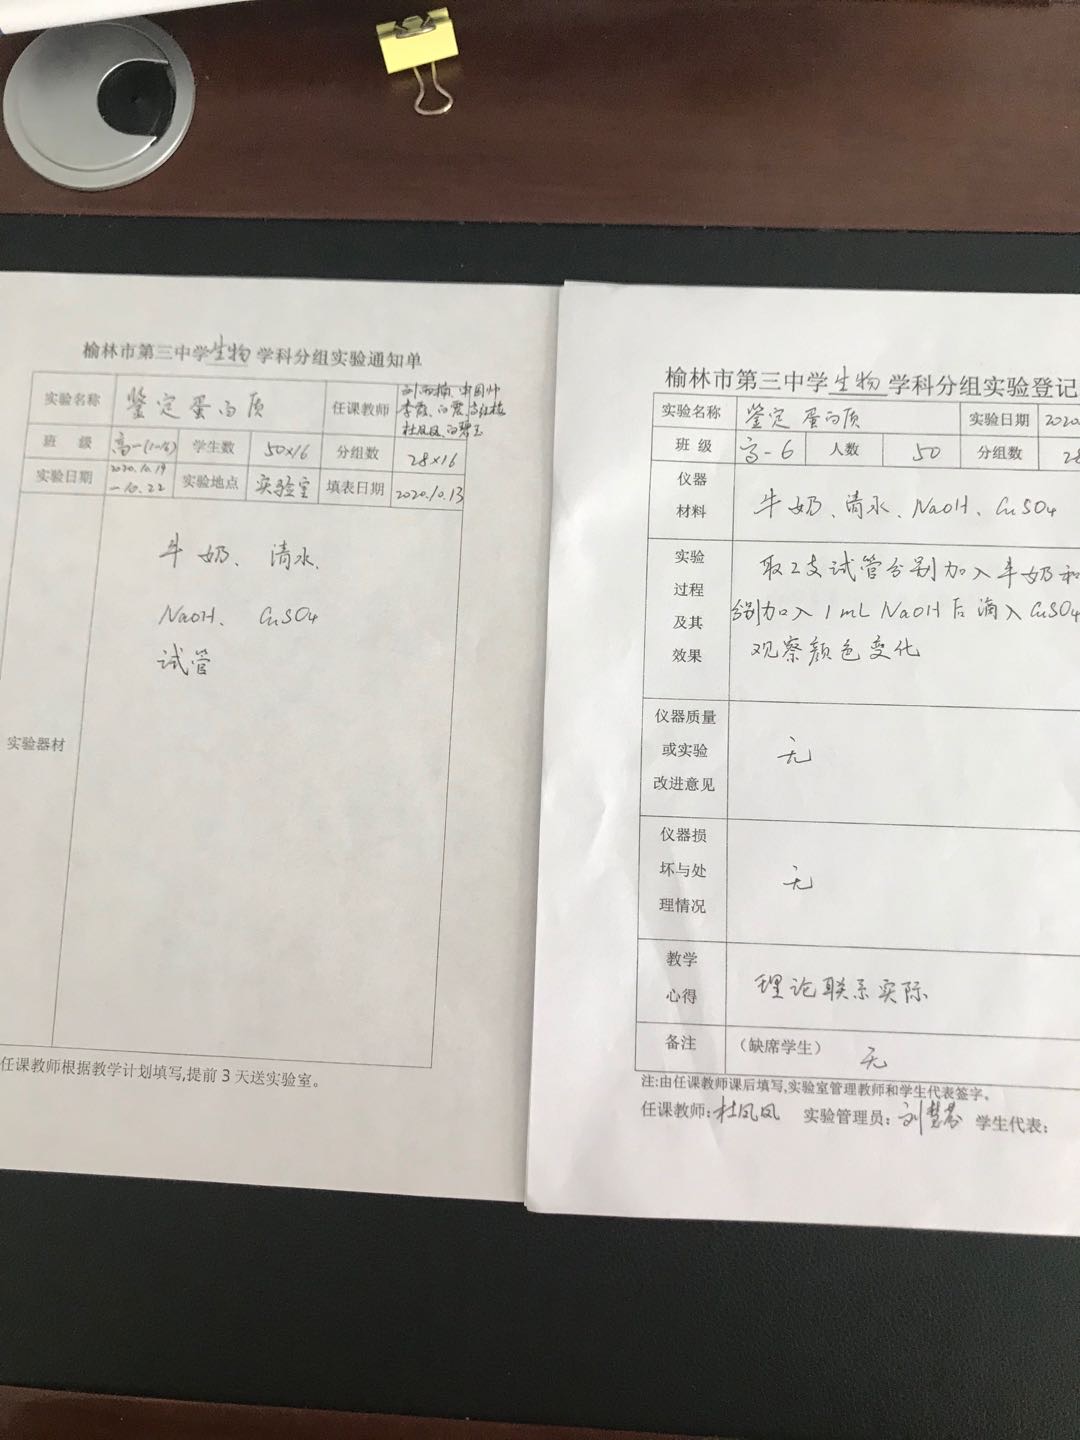 榆林市第三中学生物学科分组实验通知单
实验名称 鉴定蛋白质 任课教师
李霞、白霞、
杜凤凤、白碧玉
班 级 高一(1-16) 学生数 50×16 分组数 28×16
实验日期 2020.10.19 —10.22 实验地点 实验室 填表日期 2020.10.13
实验器材
牛奶、清水、
NaOH、CuSO4
试管
任课教师根据教学计划填写,提前3天送实验室。
榆林市第三中学生物学科分组实验登记
实验名称 鉴定蛋白质 实验日期 2020.
班 级 高一6 人数 50 分组数 28
仪器材料 牛奶、清水、NaOH、CuSO4
实验过程及其效果
取2支试管分别加入牛奶和
分别加入1mL NaOH后滴入CuSO4
观察颜色变化
仪器质量或实验改进意见 无
仪器损坏与处理情况 无
教学心得 理论联系实际
备注 (缺席学生) 无
注:由任课教师课后填写,实验室管理教师和学生代表签字。
任课教师:杜凤凤 实验管理员:刘慧芬 学生代表: